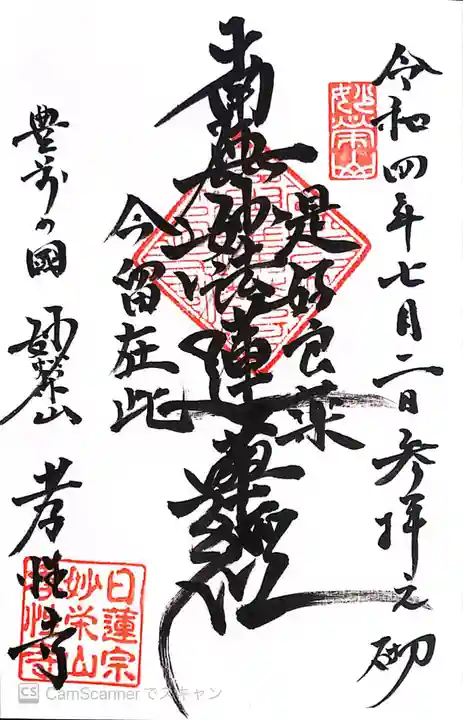 令和四年七月二日参拝之砌
妙栄山
是好良薬
南無妙法蓮華経
今留在此
豊前の國 妙栄山 孝性寺
日蓮宗
妙栄山
孝性寺
CS CamScannerでスキャン